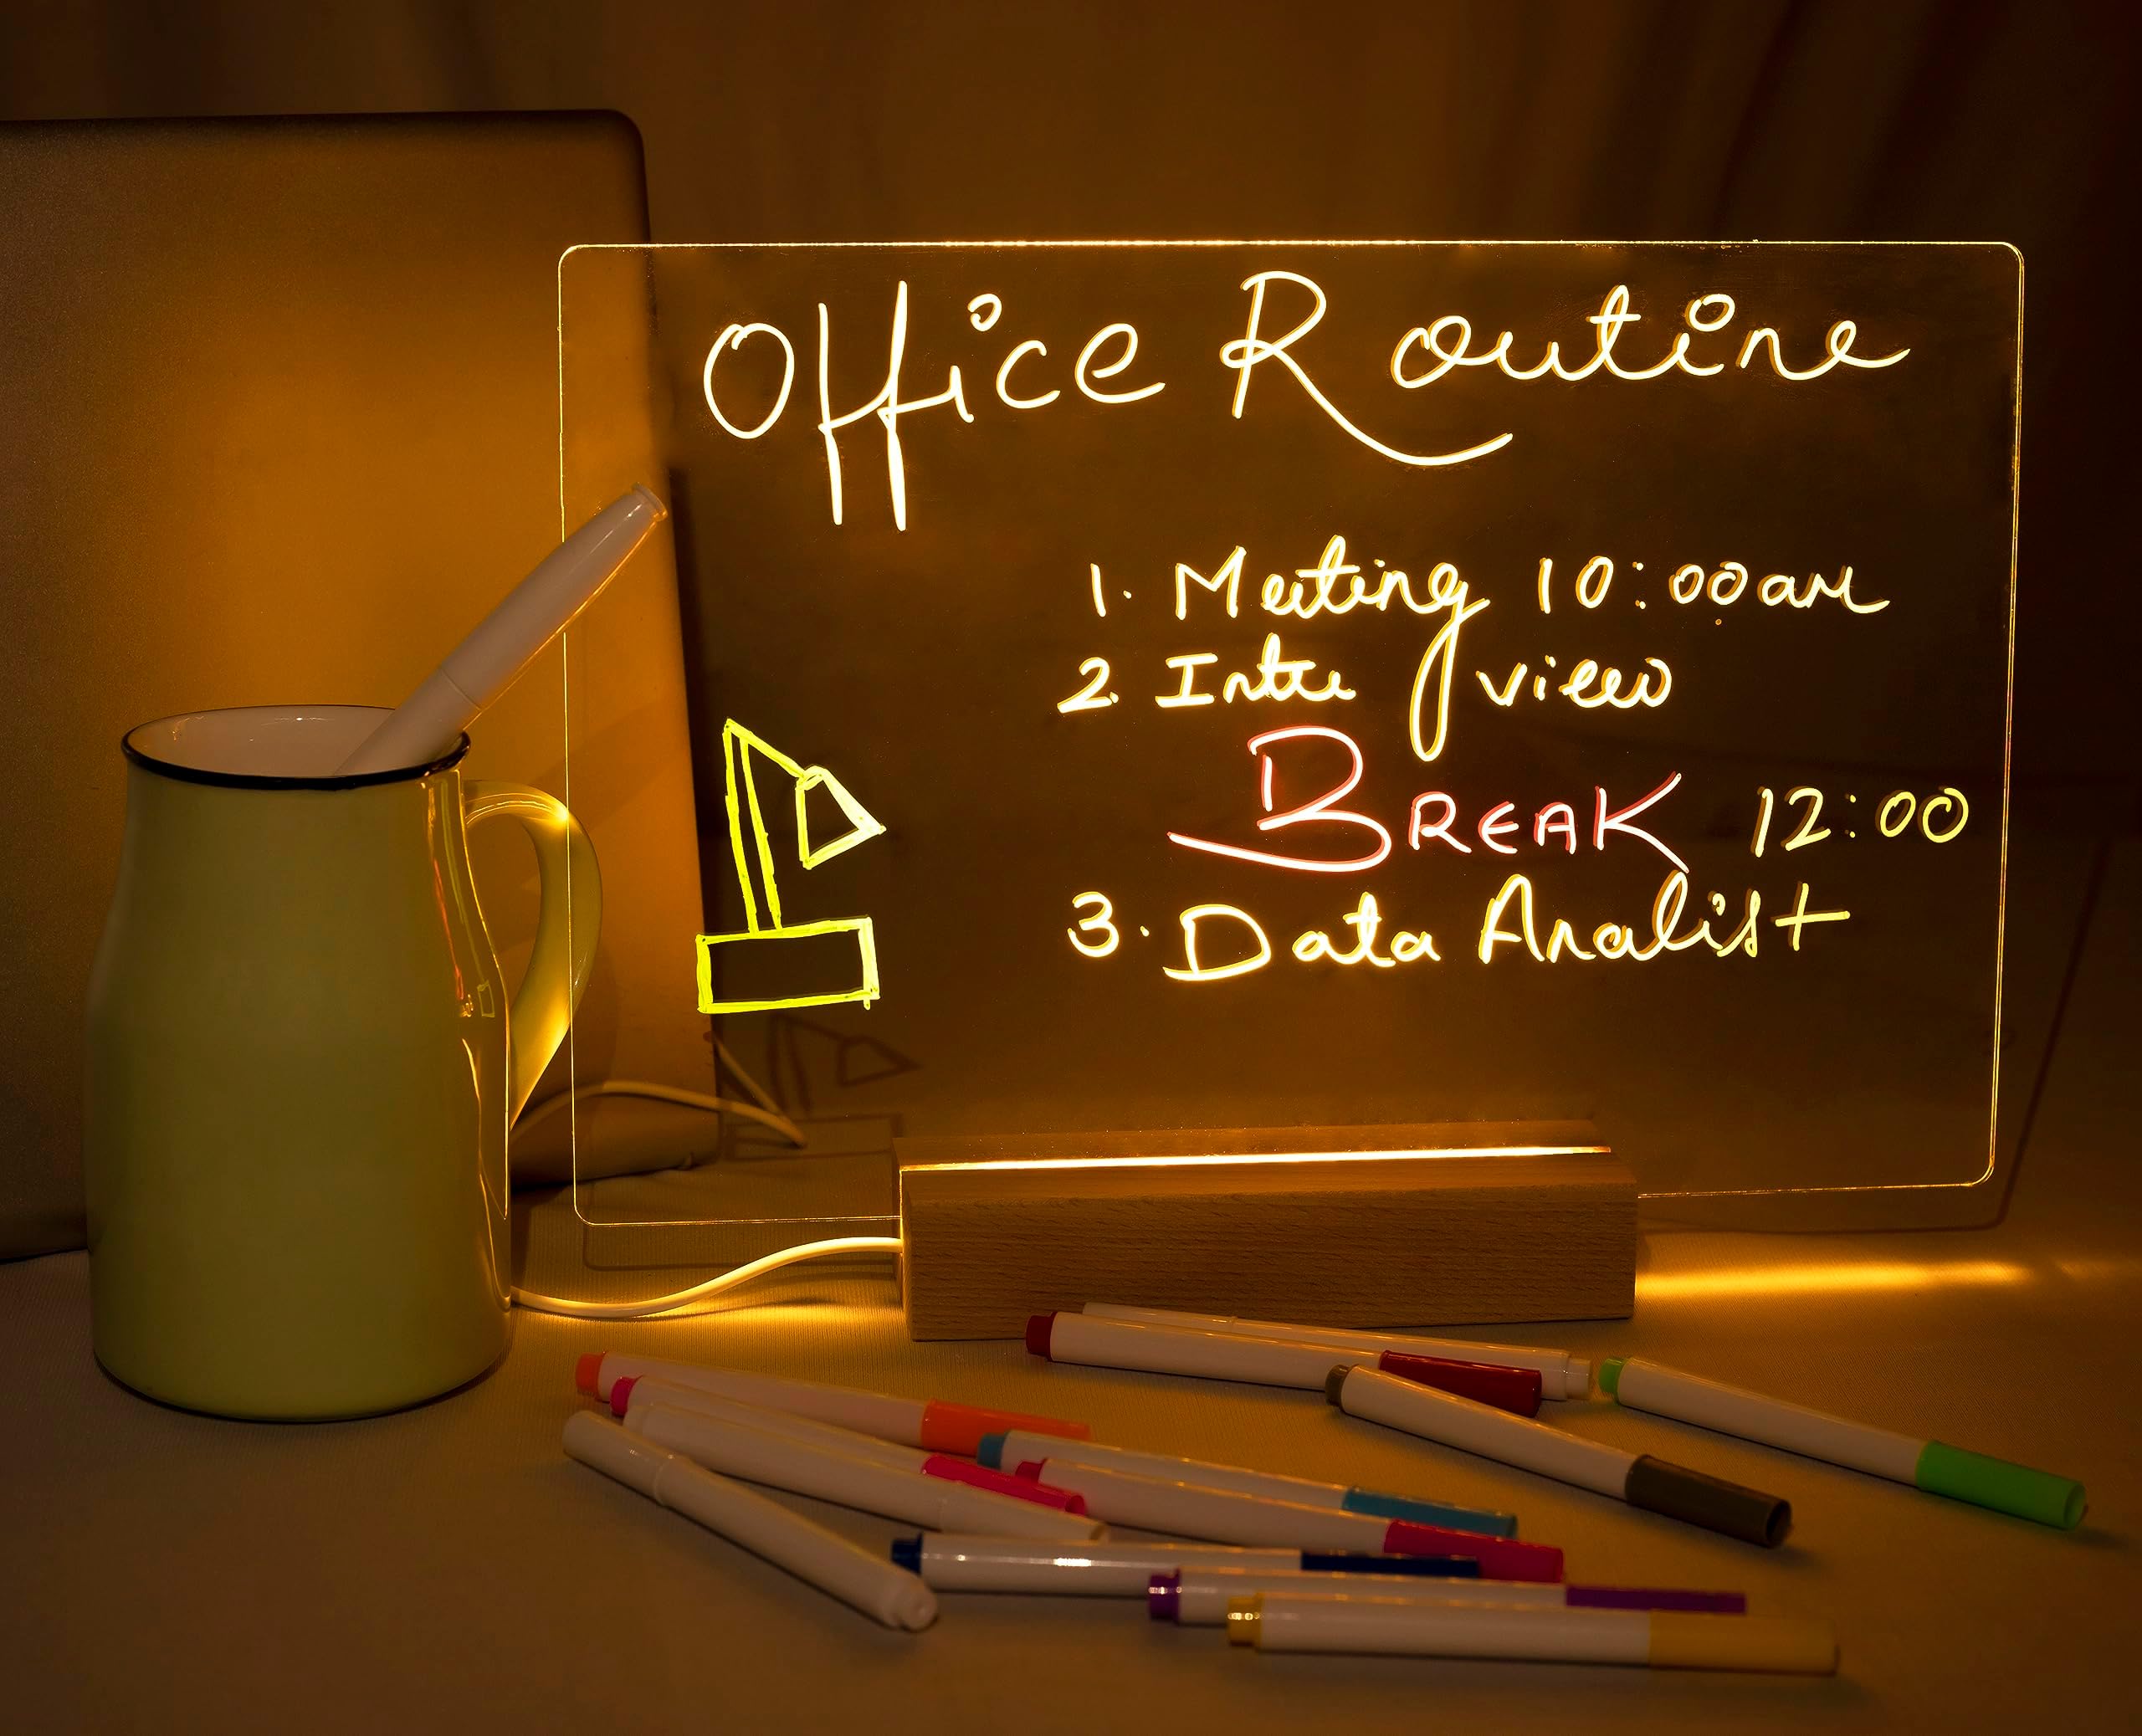 Office Routine
1. Meeting 10:00am
2. Inter view
BREAK 12:00
3. Data Analist